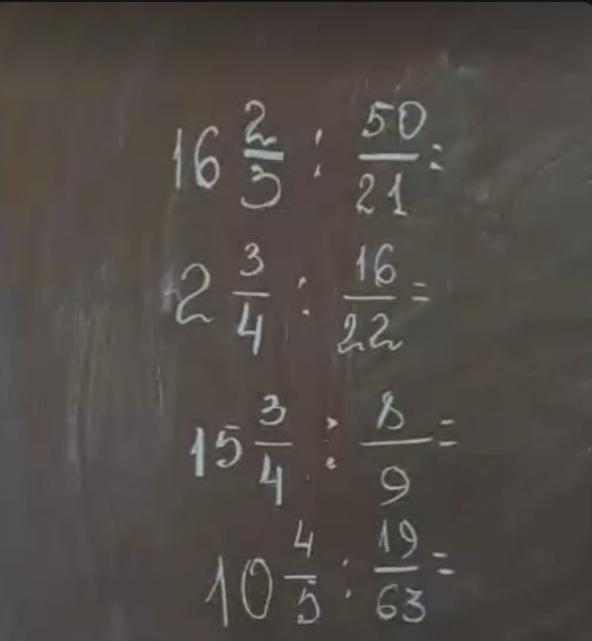 16 2/3 : 50/21 =
2 3/4 : 16/22 =
15 3/4 : 8/9 =
10 4/5 : 19/63 =